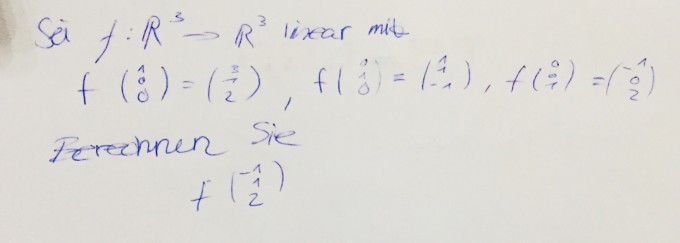 Sei f: ℝ³ → ℝ³ linear mit
f (1 0 0) = (3 1 2), f (0 1 0) = (1 1 -1), f (0 0 1) = (-1 0 2)
Berechnen Sie
f (-1 1 2)